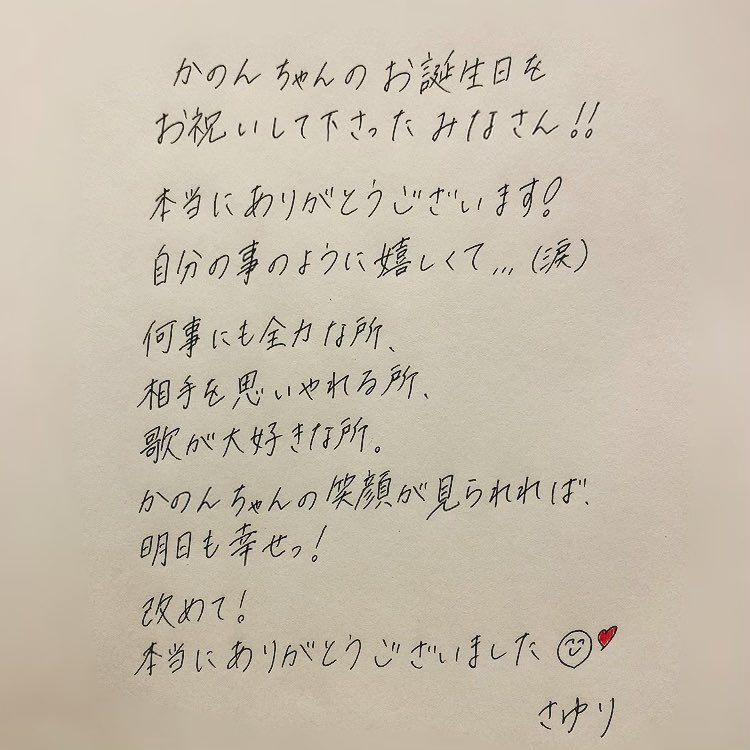 かのんちゃんのお誕生日を
お祝いして下さったみなさん!!
本当にありがとうございます!
自分の事のように嬉しくて...(涙)
何事にも全力な所、
相手を思いやれる所、
歌が大好きな所。
かのんちゃんの笑顔が見られれば、
明日も幸せっ!
改めて!
本当にありがとうございました
さゆり